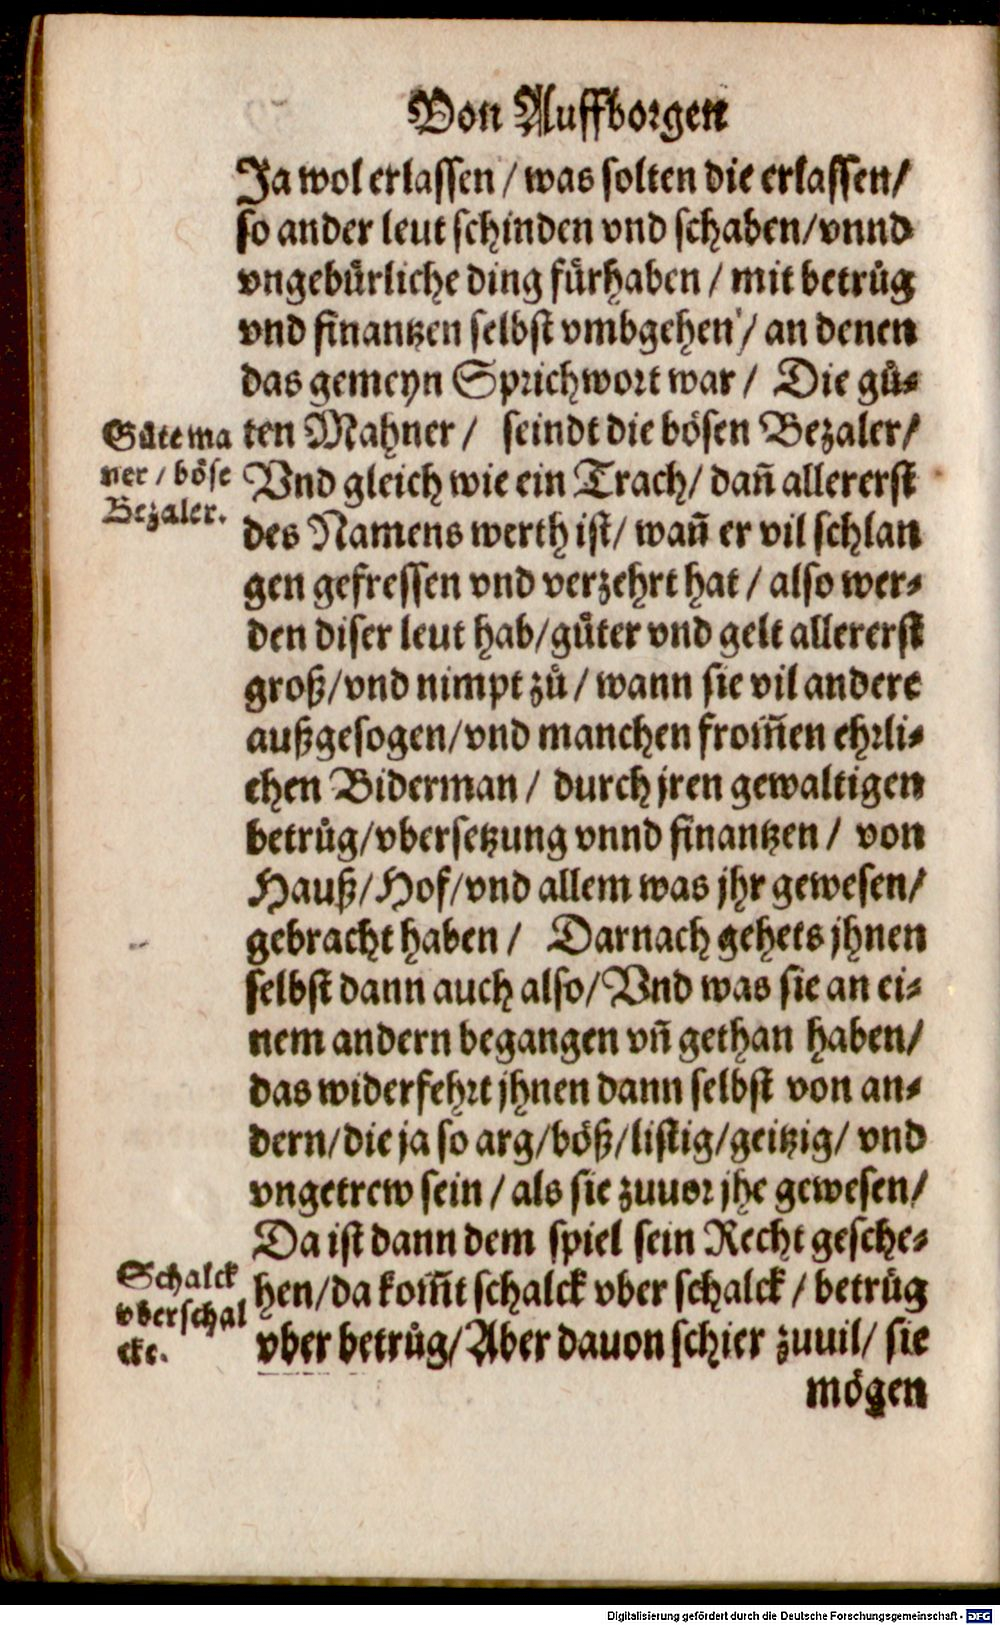 Von Auffborgen
Ja wol erlassen / was solten die erlassen /
so ander leut schinden vnd schaben / vnnd
vngebürliche ding fürhaben / mit betrůg
vnd finantzen selbst vmbgehen / an denen
das gemeyn Sprichwort war / Die gů-
ten Mahner / seindt die bösen Bezaler /
Gůte ma
ner / böse
Bezaler.
Vnd gleich wie ein Trach / dañ allererst
des Namens werth ist / wañ er vil schlan
gen gefressen vnd verzehrt hat / also wer-
den diser leut hab / gůter vnd gelt allererst
groß / vnd nimpt zů / wann sie vil andere
außgesogen / vnd manchen from̃en ehrli-
chen Biderman / durch jren gewaltigen
betrůg / vbersetzung vnnd finantzen / von
Hauß / Hof / vnd allem was jhr gewesen /
gebracht haben / Darnach gehets jhnen
selbst dann auch also / Vnd was sie an ei-
nem andern begangen vñ gethan haben /
das widerfehrt jhnen dann selbst von an-
dern / die ja so arg / böß / listig / geitzig / vnd
vngetrew sein / als sie zuuor jhe gewesen /
Da ist dann dem spiel sein Recht gesche-
hen / da kom̃t schalck vber schalck / betrůg
Schalck
vber schal
cke.
vber betrůg / Aber dauon schier zuuil / sie
mögen
Digitalisierung gefördert durch die Deutsche Forschungsgemeinschaft - DFG